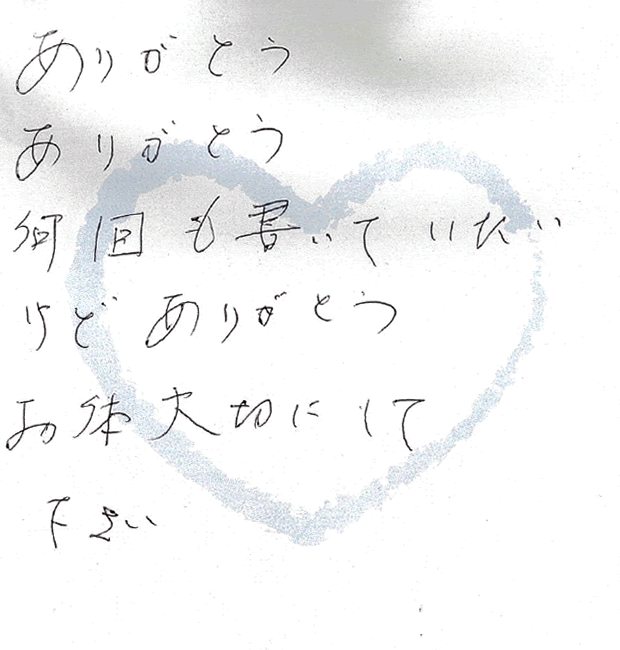 ありがとう
ありがとう
何回も書いていたい
けどありがとう
お体大切にして
下さい